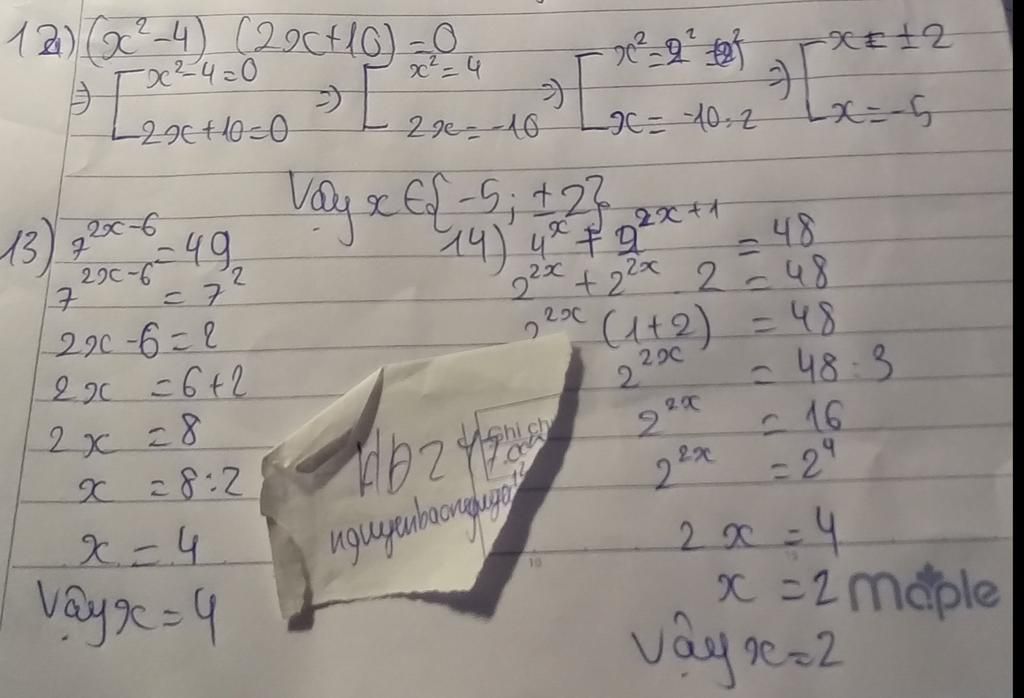 12) (x²-4) (2x+10) = 0
⇒ [ x²-4=0 ⇒ [ x²=4 ⇒ [ x²=2² ⇒ [ x=±2
2x+10=0 2x=-10 x=-10:2 x=-5
Vậy x∈{-5; ±2}
13) 7^{2x-6} = 49
7^{2x-6} = 7²
2x-6=2
2x =6+2
2x =8
x =8:2
x =4
Vậy x=4
14) 4^x + 2^{2x+1} = 48
2^{2x} + 2^{2x} . 2 = 48
2^{2x} (1+2) = 48
2^{2x} = 48:3
2^{2x} = 16
2^{2x} = 2⁴
2x =4
x =2
Vậy x=2
nguyenbaongugo
maple